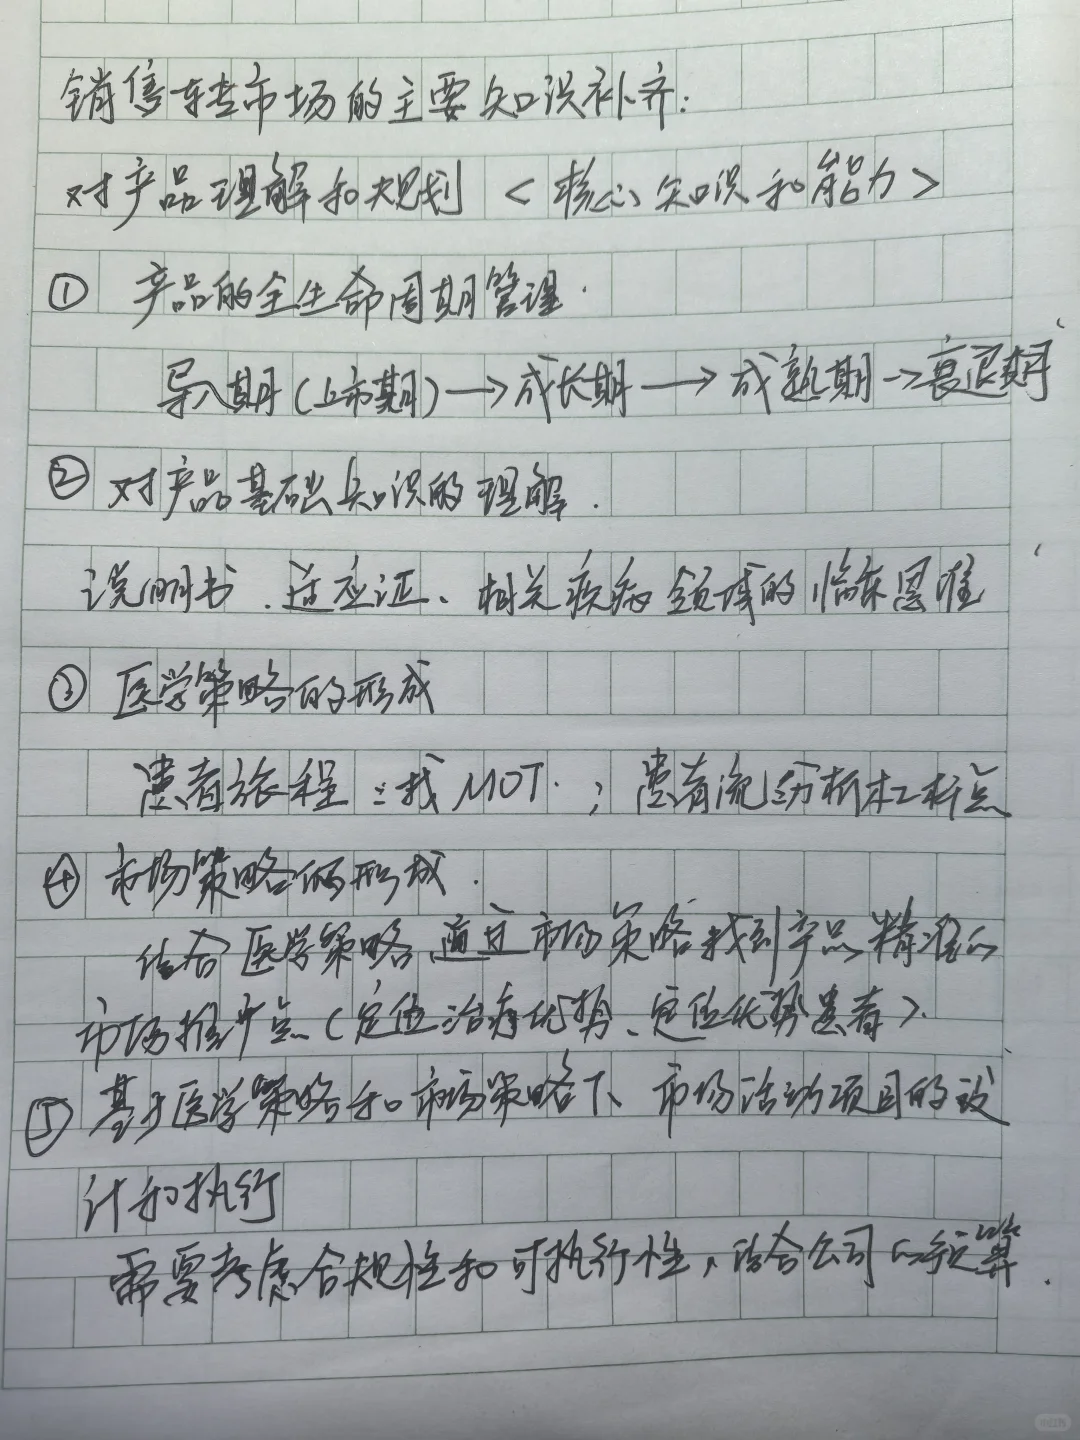 销售转市场的主要知识补齐:
对产品理解和规划 <核心知识和能力>
① 产品的全生命周期管理.
导入期(上市期)→成长期→成熟期→衰退期
② 对产品基础知识的理解.
说明书、适应证、相关疾病领域的临床思维
③ 医学策略的形成
患者旅程:找MOT.;患者流分析杠杆点
④ 市场策略的形成.
结合医学策略通过市场策略找到产品精准的
市场推广点(定位治疗优势、定位优势患者).
⑤ 基于医学策略和市场策略下、市场活动项目的设
计和执行
需要考虑合规性和可执行性,结合公司的预算.